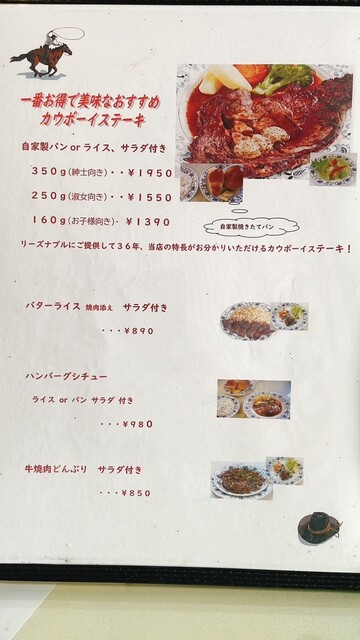 一番お得で美味なおすすめ
カウボーイステーキ
自家製パン or ライス、サラダ付き
350g(紳士向き)・・¥1950
250g(淑女向き)・・¥1550
160g(お子様向き)・¥1390
自家製焼きたてパン
リーズナブルにご提供して36年、当店の特長がお分かりいただけるカウボーイステーキ！
バターライス 焼肉添え サラダ付き
・・・¥890
ハンバーグシチュー
ライス or パン サラダ 付き
・・・¥980
牛焼肉どんぶり サラダ付き
・・・¥850